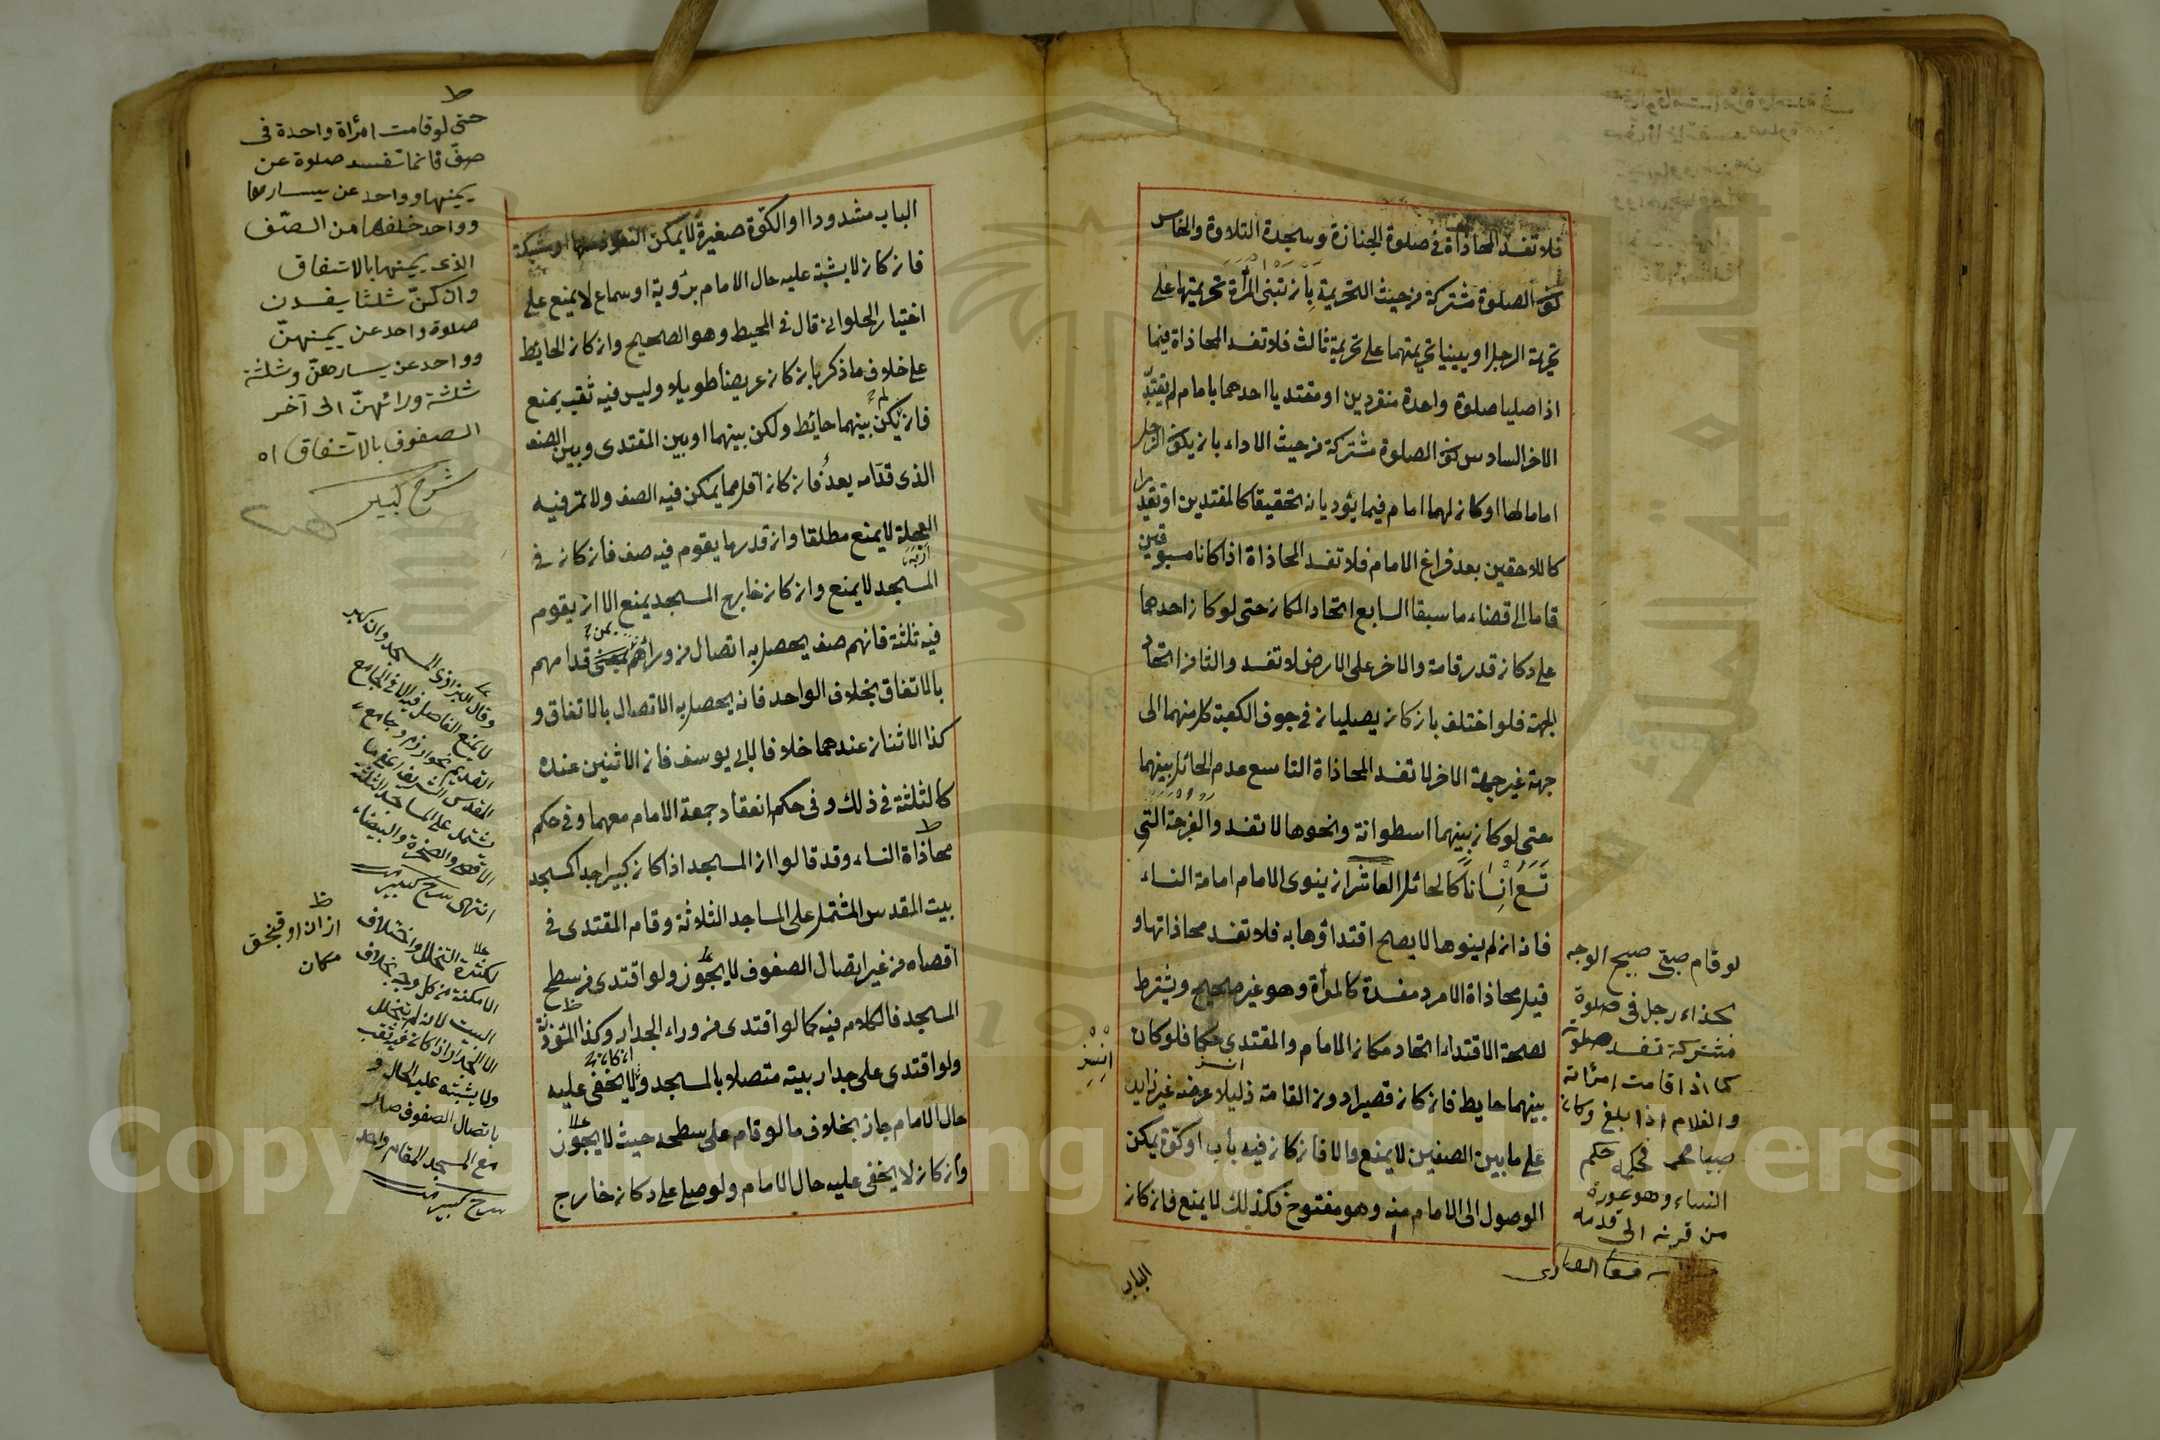 فلا تفسد المحاذاة في صلوة الجنازة وسجدة التلاوة والخامس
كون الصلوة مشتركة من حيث التحريمة بان تبنى المرأة تحريمتها على
تحريمة الرجل او يبنيا تحريمتهما على تحريمة ثالث فلا تفسد المحاذاة فيما
اذا صليا صلوة واحدة منفردين او مقتديا احدهما بامام لم يقتد به
الاخر السادس كون الصلوة مشتركة من حيث الاداء بان يكون الرجل
اماما لها او كان لهما امام فيما يؤديانه تحقيقا كالمقتدين او تقديرا
كاللاحقين بعد فراغ الامام فلا تفسد المحاذاة اذا كانا مسبوقين
قاما الى قضاء ما سبقا السابع اتحاد المكان حتى لو كان احدهما
على دكان قدر قامة والاخر على الارض لا تفسد والثامن اتحاد
الجهة فلو اختلف بان كان يصليان في جوف الكعبة كل منهما الى
جهة غير جهة الاخر لا تفسد المحاذاة التاسع عدم الحائل بينهما
حتى لو كان بينهما اسطوانة ونحوها لا تفسد والفرجة التي
تسع انسانا كالحائل العاشر ان ينوى الامام امامة النساء
فاذا لم ينوها لا يصح اقتداؤها به فلا تفسد محاذاتها و
قيل محاذاة الامرد مفسدة كالمرأة وهو غير صحيح ويشترط
لصحة الاقتداء اتحاد مكان الامام والمقتدى حكما فلو كان
بينهما حايط فان كان قصيرا دون القامة ذليلا عرضه غير زايد
على ما بين الصفين لا يمنع والا فان كان فيه باب او كوة يمكن
الوصول الى الامام منه وهو مفتوح فكذلك لا يمنع فان كان
الباب
لو قام صبى صبيح الوجه
بحذاء رجل في صلوة
مشتركة تفسد صلوته
كما اذا قامت امرأة
والغلام اذا بلغ وكان
صبيحا فحكمه حكم
النساء وهو عورة
من قرنه الى قدمه
الباب مشدودا او الكوة صغيرة لا يمكن النفوذ منها او مشبكة
فان كان لا يشتبه عليه حال الامام برؤية او سماع لا يمنع على
اختيار الحلوانى قال في المحيط وهو الصحيح وان كان الحايط
على خلاف ما ذكر بان كان عريضا طويلا وليس فيه ثقب يمنع
فان لم يكن بينهما حائط ولكن بينهما او بين المقتدى وبين الصف
الذى قدامه بعد فان كان اقل مما يمكن فيه الصف ولا تمر فيه
العجلة لا يمنع مطلقا وان قدر ما يقوم فيه صف فان كان في
المسجد لا يمنع وان كان خارج المسجد يمنع الا ان يقوم
فيه ثلثة فانهم صف يحصل به اتصال من ورائهم بمن قدامهم
بالاتفاق بخلاف الواحد فانه لا يحصل به الاتصال بالاتفاق و
كذا الاثنان عندهما خلافا لابى يوسف فان الاثنين عنده
كالثلثة في ذلك وفى حكم انعقاد جمعة الامام معهما وفى حكم
محاذاة النساء وقد قالوا ان المسجد اذا كان كبيرا جدا كمسجد
بيت المقدس المشتمل على المساجد الثلاثة وقام المقتدى في
اقصاه من غير اتصال الصفوف لا يجوز ولو اقتدى من سطح
المسجد فالكلام فيه كما لو اقتدى من وراء الجدار وكذا المؤذنة
ولو اقتدى على جدار بيته متصلا بالمسجد ولا يخفى عليه
حال الامام جاز بخلاف ما لو قام على سطحه حيث لا يجوز
وان كان لا يخفى عليه حال الامام ولو صلى على دكان خارج
حتى لو قامت امرأة واحدة في
صف فانها تفسد صلوة عن
يمينها وواحد عن يسارها
وواحد خلفها من الصف
الذى يمينها بالاتفاق
وان كن ثلثا يفسدن
صلوة واحد عن يمينهن
وواحد عن يسارهن وثلثة
ثلثة ورائهن الى آخر
الصفوف بالاتفاق اه
شرح كبير
لا يمنع الفاصل فيه الا في الجامع
القديم بخوارزم وجامع
المقدس الشريف اعنى ما
يشتمل على المساجد الثلثة
الاقصى والصخرة والبيضاء
انتهى شرح كبير
لكثرة التخلل واختلاف
الامكنة من كل وجه بخلاف
البيت لانه لم يتخلل
الا الجدار
ولا يشتبه عليه الحال و
باتصال الصفوف صار
مع المسجد المقام واحد
شرح كبير
Copyright © King Saud University